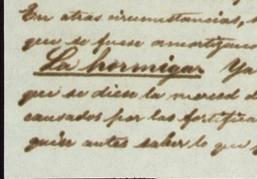 En otras circunstancias, s
que se fuese amortizano
La hormigar Ya
que se diese la merced d
causados por las fortifica
quise antes saber lo que